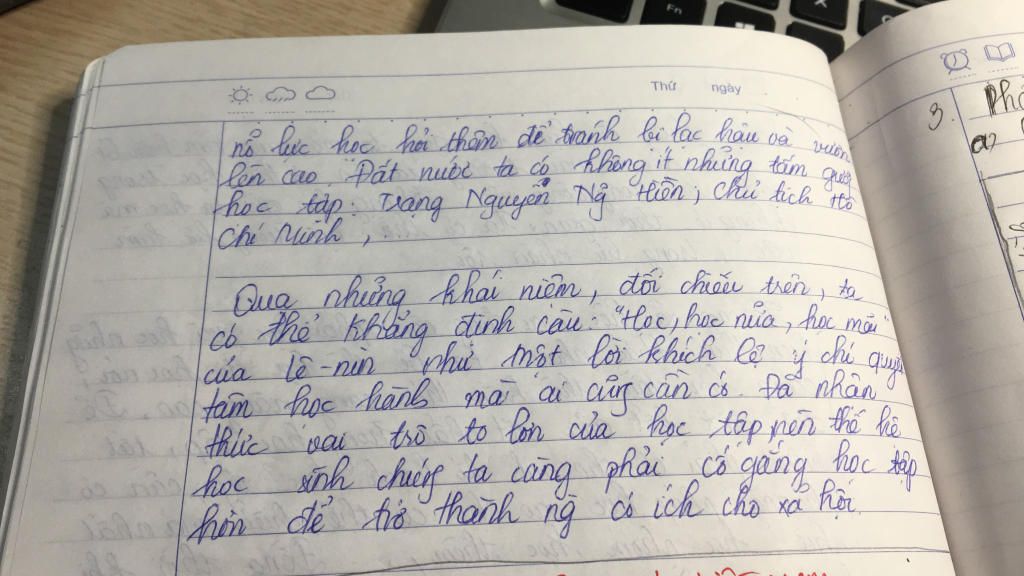 Thứ ngày
nỗ lực học hỏi thêm để tránh bị lạc hậu và vươn
lên cao. Đất nước ta có không ít những tấm gương
học tập: Trạng Nguyễn Ng Hiền, chủ tịch Hồ
Chí Minh, .
Qua những khái niệm, đối chiếu trên, ta
có thể khẳng định câu: "Học, học nữa, học mãi"
của Lê-nin như một lời khích lệ ý chí quyết
tâm học hành mà ai cũng cần có. Đã nhận
thức vai trò to lớn của học tập nên thế hệ
học sinh chúng ta càng phải cố gắng học tập
hơn để trở thành ng có ích cho xã hội.
3.
a)
Fn